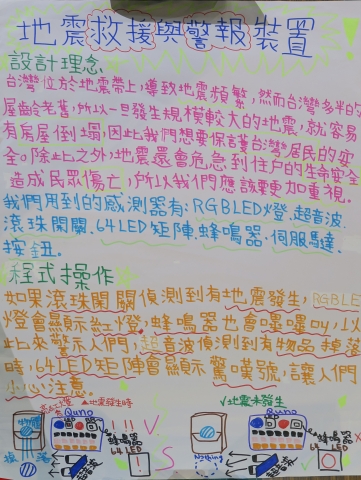 地震救援與警報裝置!
設計理念
台灣位於地震帶上,導致地震頻繁,然而台灣多半的
屋齡老舊,所以一旦發生規模較大的地震,就容易
有房屋倒塌,因此我們想要保護台灣居民的安
全。除此之外,地震還會危急到住戶的生命安全
造成民眾傷亡,所以我們應該要更加重視。
我們用到的感測器有:RGBLED燈、超音波、
滾珠開關、64LED矩陣、蜂鳴器、伺服馬達、
按鈕。
程式操作
如果滾珠開關偵測到有地震發生,RGBLED
燈會顯示紅燈,蜂鳴器也會嗶嗶叫,以
此來警示人們,超音波偵測到有物品掉落
時,64LED矩陣會顯示驚嘆號,讓人們
小心注意。
▲地震發生時
Quno
!!!
64LED
超音波
VS
✓地震未發生
Quno
Nothing
64LED
超音波